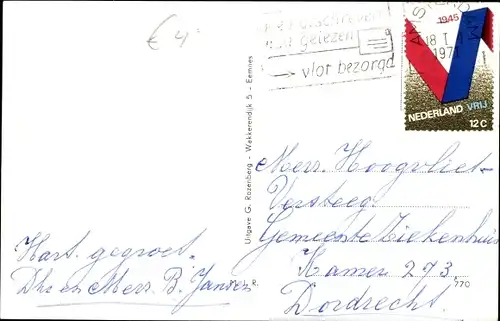 € 4
gelezen
→ vlot bezorgd
AMSTERDAM
1945
18 I
197
NEDERLAND VRIJ
12 C
Uitgave G. Rozenberg - Wakkerendijk 5 - Eemnes
R.
770
Mevr. Hoogvliet-
Versteeg.
Gemeente Ziekenhuis
Kamer 273.
Dordrecht.
Hart. gegroet.
Dhr en Mevr. B. Jansen